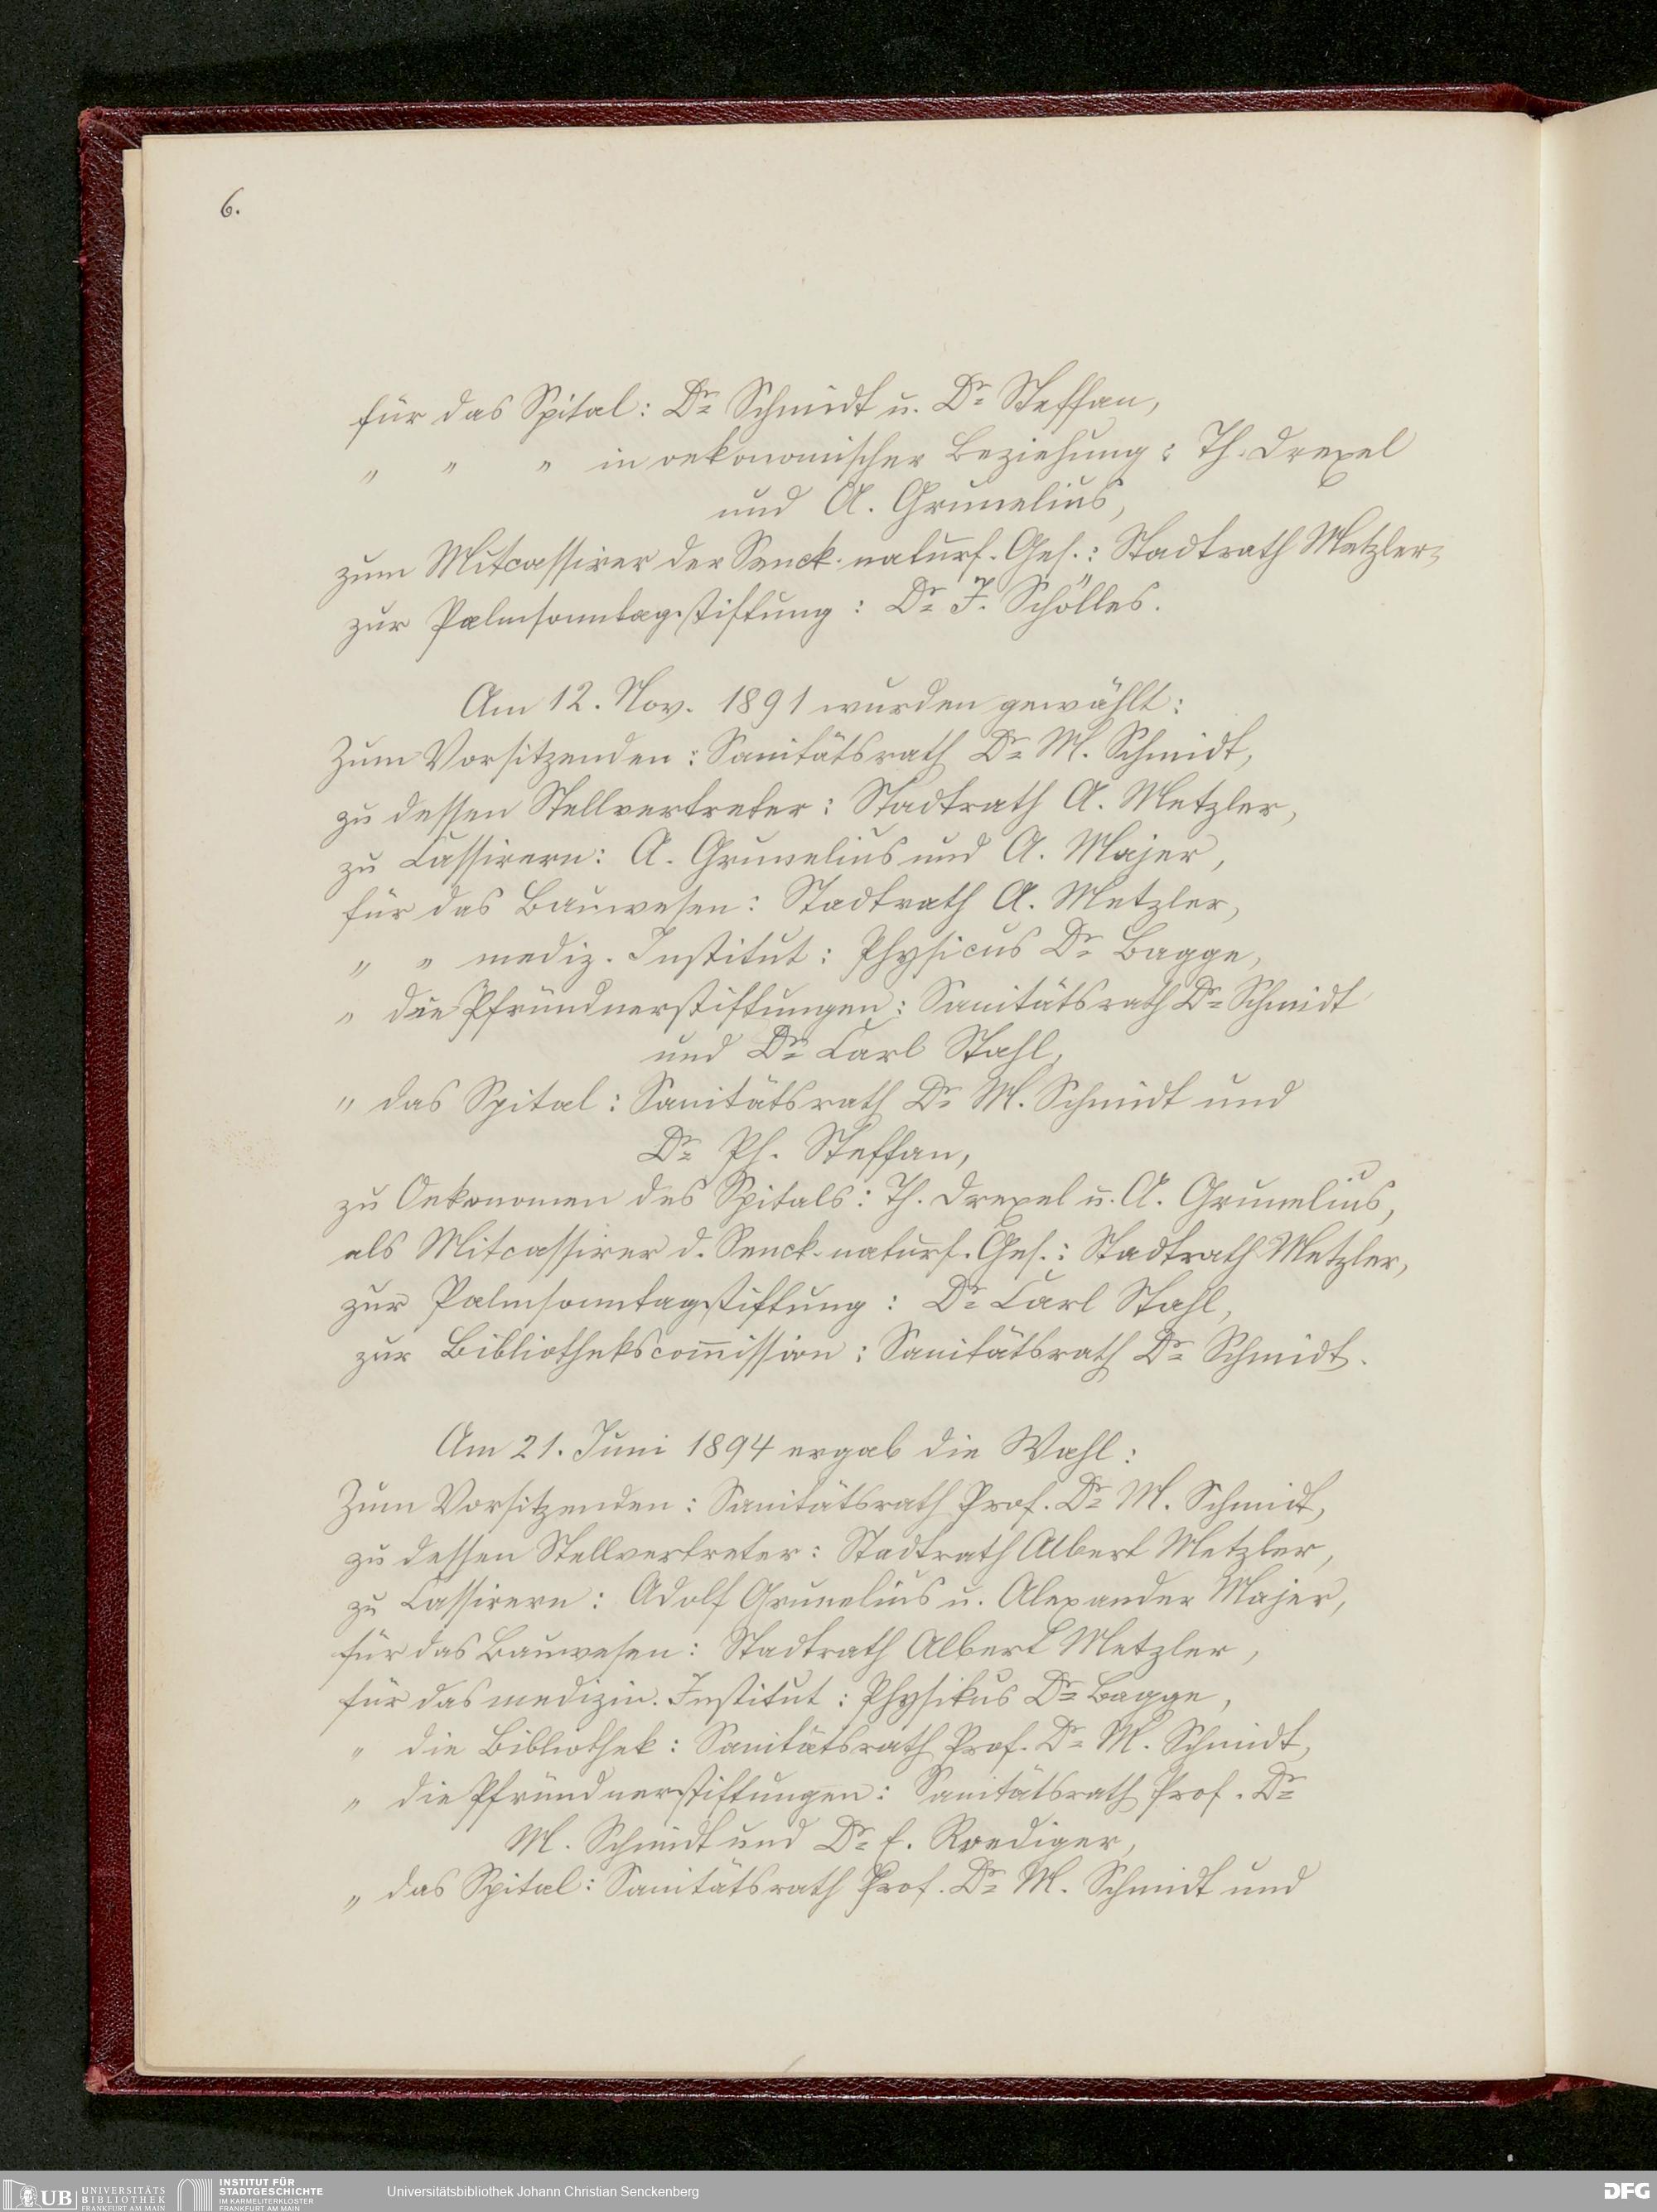 6.
für das Spital: Dr Schmidt u. Dr Steffan,
„ „ „ in oekonomischer Beziehung: Th. Drexel
und A. Grunelius,
zum Mitcassirer der Senck. naturf. Ges.: Stadtrath Metzler,
zur Palmsonntagsstiftung: Dr J. Schölles.
Am 12. Nov. 1891 wurden gewählt:
Zum Vorsitzenden: Sanitätsrath Dr M. Schmidt,
zu dessen Stellvertreter: Stadtrath A. Metzler,
zu Cassirern: A. Grunelius und A. Majer,
für das Bauwesen: Stadtrath A. Metzler,
„ „ mediz. Institut: Physicus Dr Bagge,
„ die Pfründnerstiftungen: Sanitätsrath Dr Schmidt
und Dr Carl Stahl,
„ das Spital: Sanitätsrath Dr M. Schmidt und
Dr Ph. Steffan,
zu Oekonomen des Spitals: Th. Drexel u. A. Grunelius,
als Mitcassirer d. Senck. naturf. Ges.: Stadtrath Metzler,
zur Palmsonntagstiftung: Dr Carl Stahl,
zur Bibliothekscom̅ission: Sanitätsrath Dr Schmidt.
Am 21. Juni 1894 ergab die Wahl:
Zum Vorsitzenden: Sanitätsrath Prof. Dr M. Schmidt,
zu dessen Stellvertreter: Stadtrath Albert Metzler,
zu Cassirern: Adolf Grunelius u. Alexander Majer,
für das Bauwesen: Stadtrath Albert Metzler,
für das medizin. Institut: Physikus Dr Bagge,
„ die Bibliothek: Sanitätsrath Prof. Dr M. Schmidt,
„ die Pfründnerstiftungen: Sanitätsrath Prof. Dr
M. Schmidt und Dr E. Roediger,
„ das Spital: Sanitätsrath Prof. Dr M. Schmidt und
UB UNIVERSITÄTS BIBLIOTHEK FRANKFURT AM MAIN
INSTITUT FÜR STADTGESCHICHTE IM KARMELITERKLOSTER FRANKFURT AM MAIN
Universitätsbibliothek Johann Christian Senckenberg
DFG